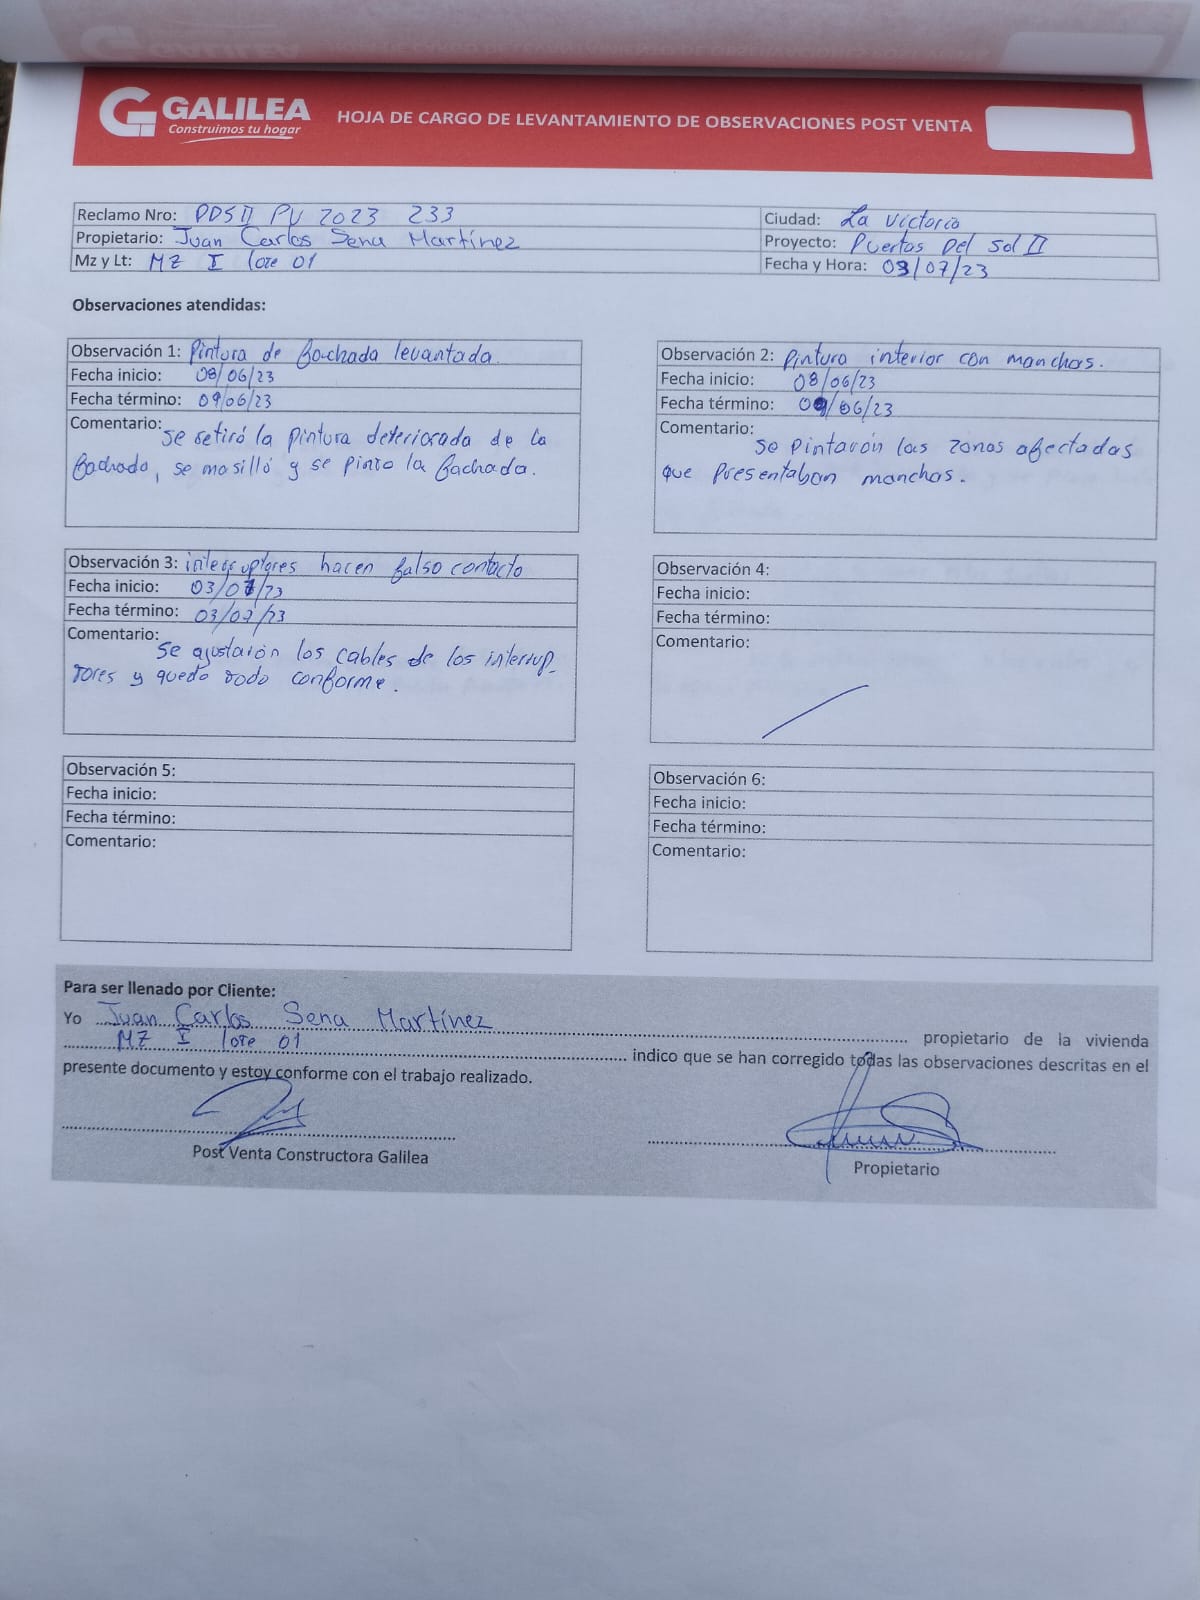 GALILEA
Construimos tu hogar
HOJA DE CARGO DE LEVANTAMIENTO DE OBSERVACIONES POST VENTA
Reclamo Nro: PDSII PV 2023 233
Propietario: Juan Carlos Sena Martínez
Mz y Lt: MZ I lote 01
Ciudad: La Victoria
Proyecto: Puertas Del Sol II
Fecha y Hora: 03/07/23
Observaciones atendidas:
Observación 1: Pintura de fachada levantada.
Fecha inicio: 08/06/23
Fecha término: 09/06/23
Comentario: Se retiró la pintura deteriorada de la
fachada, se masilló y se pinto la fachada.
Observación 2: Pintura interior con manchas.
Fecha inicio: 08/06/23
Fecha término: 09/06/23
Comentario: Se pintarón las zonas afectadas
que presentaban manchas.
Observación 3: interruptores hacen falso contacto
Fecha inicio: 03/07/23
Fecha término: 03/07/23
Comentario: Se ajustarón los cables de los interrup-
tores y quedo todo conforme.
Observación 4:
Fecha inicio:
Fecha término:
Comentario:
Observación 5:
Fecha inicio:
Fecha término:
Comentario:
Observación 6:
Fecha inicio:
Fecha término:
Comentario:
Para ser llenado por Cliente:
Yo Juan Carlos Sena Martínez propietario de la vivienda
MZ I lote 01 indico que se han corregido todas las observaciones descritas en el
presente documento y estoy conforme con el trabajo realizado.
Post Venta Constructora Galilea
Propietario